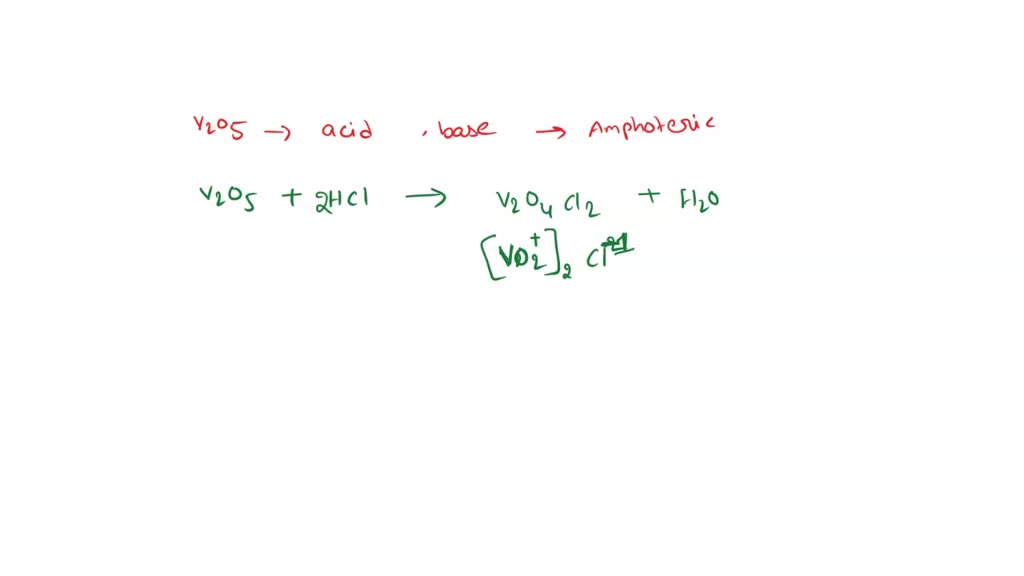 V₂O₅ → acid , base → Amphoteric
V₂O₅ + 2HCl → V₂O₄Cl₂ + H₂O
[VO₂⁺]₂ Cl